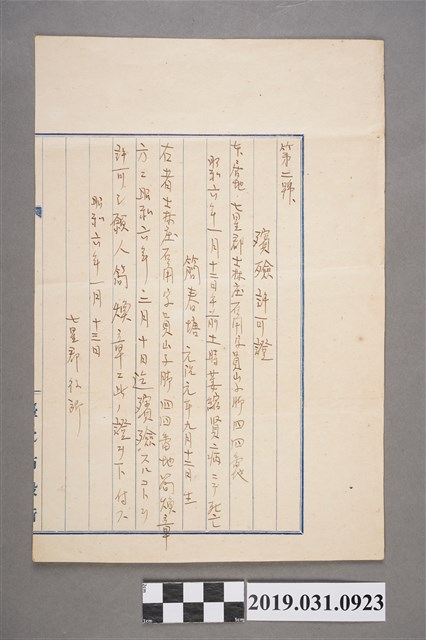 第二號
殯殮許可證
本居地 七星郡士林庄石角字員山子脚四四番地
昭和六年一月十三日午前十時萎縮賢病ニテ死亡
簡春塘 元治元年九月十三日生
右者士林庄石角字員山子脚四四番地簡煩章
方ニ昭和六年二月十日迄殯殮スルコトヲ
許可シ願人簡煩章ニ此ノ證ヲ下付ス
昭和六年一月十三日
七星郡役所
2019.031.0923